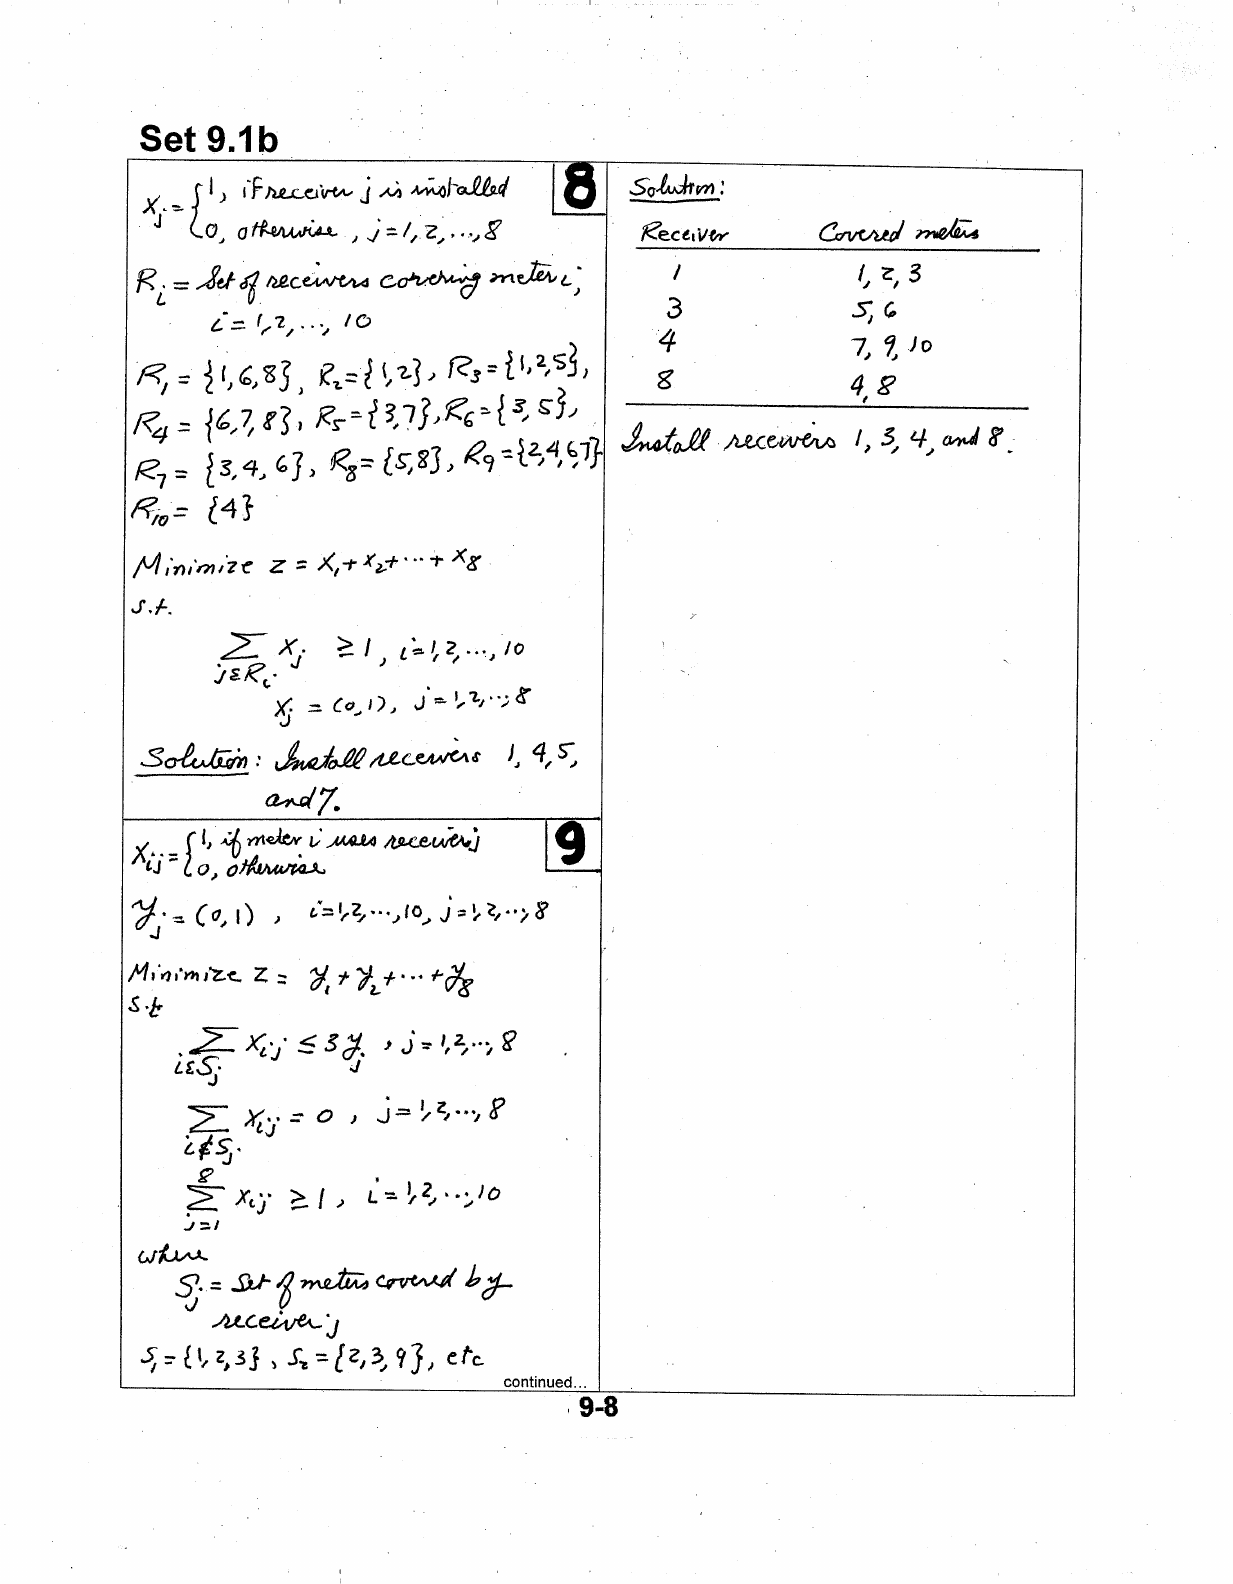 Set 9.1b
8
Xj = { 1, if receiver j is installed
0, otherwise , j = 1, 2, ..., 8
Ri = Set of receivers covering meter i;
i = 1, 2, ..., 10
R1 = {1,6,8}, R2 = {1,2}, R3 = {1,2,5},
R4 = {6,7,8}, R5 = {3,7}, R6 = {3,5},
R7 = {3,4,6}, R8 = {5,8}, R9 = {2,4,6,7}
R10 = {4}
Minimize z = X1 + X2 + ... + X8
s.t.
Σ Xj ≥ 1, i = 1, 2, ..., 10
j ε Ri
Xj = (0,1), j = 1, 2, ..., 8
Solution: Install receivers 1, 4, 5,
and 7.
9
Xij = { 1, if meter i uses receiver j
0, otherwise
yj = (0,1) , i = 1,2,...,10, j = 1,2,...,8
Minimize Z = y1 + y2 + ... + y8
s.t
Σ Xij ≤ 3yj , j = 1,2,...,8
i ε Sj
Σ Xij = 0 , j = 1,2,...,8
i ∉ Sj
8
Σ Xij ≥ 1, i = 1,2,...,10
j=1
where
Sj = Set of meters covered by
receiver j
S1 = {1,2,3}, S2 = {2,3,9}, etc
continued...
Solution:
Receiver Covered meters
1 1, 2, 3
3 5, 6
4 7, 9, 10
8 4, 8
Install receivers 1, 3, 4, and 8.
9-8